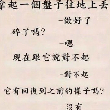 拿起一個盤子往地上丟
-做好了
碎了嗎?
-嗯
現在跟它說對不起
-對不起
它有回復到之前的樣子嗎?
-沒有